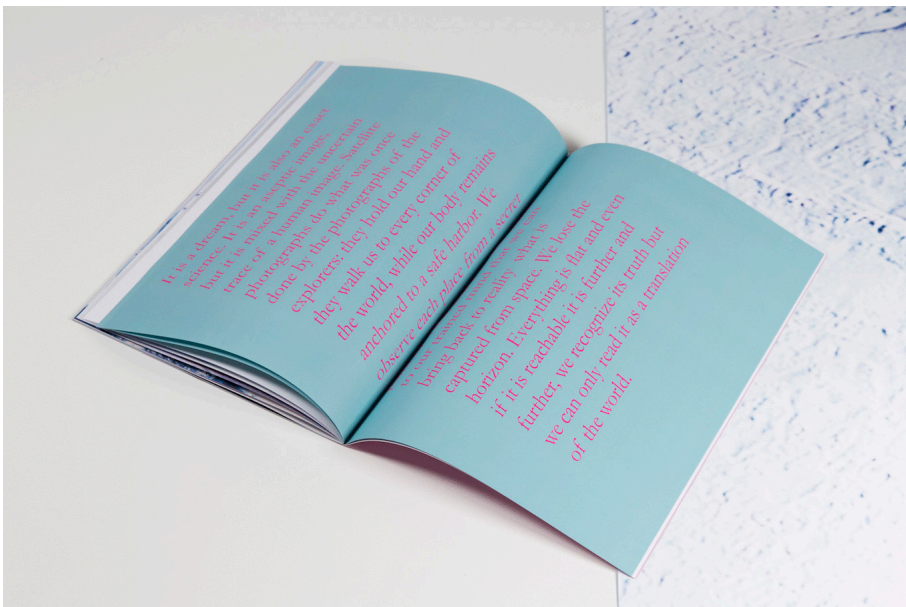 It is a dream, but it is also an exact
science. It is an aseptic image,
but it is mixed with the uncertain
trace of a human image. Satellite
photographs do what was once
done by the photographs of the
explorers: they hold our hand and
they walk us to every corner of
the world, while our body remains
anchored to a safe harbor. We
observe each place from a secret
bring back to reality what is
captured from space. We lose the
horizon. Everything is flat and even
if it is reachable it is further and
further, we recognize its truth but
we can only read it as a translation
of the world.